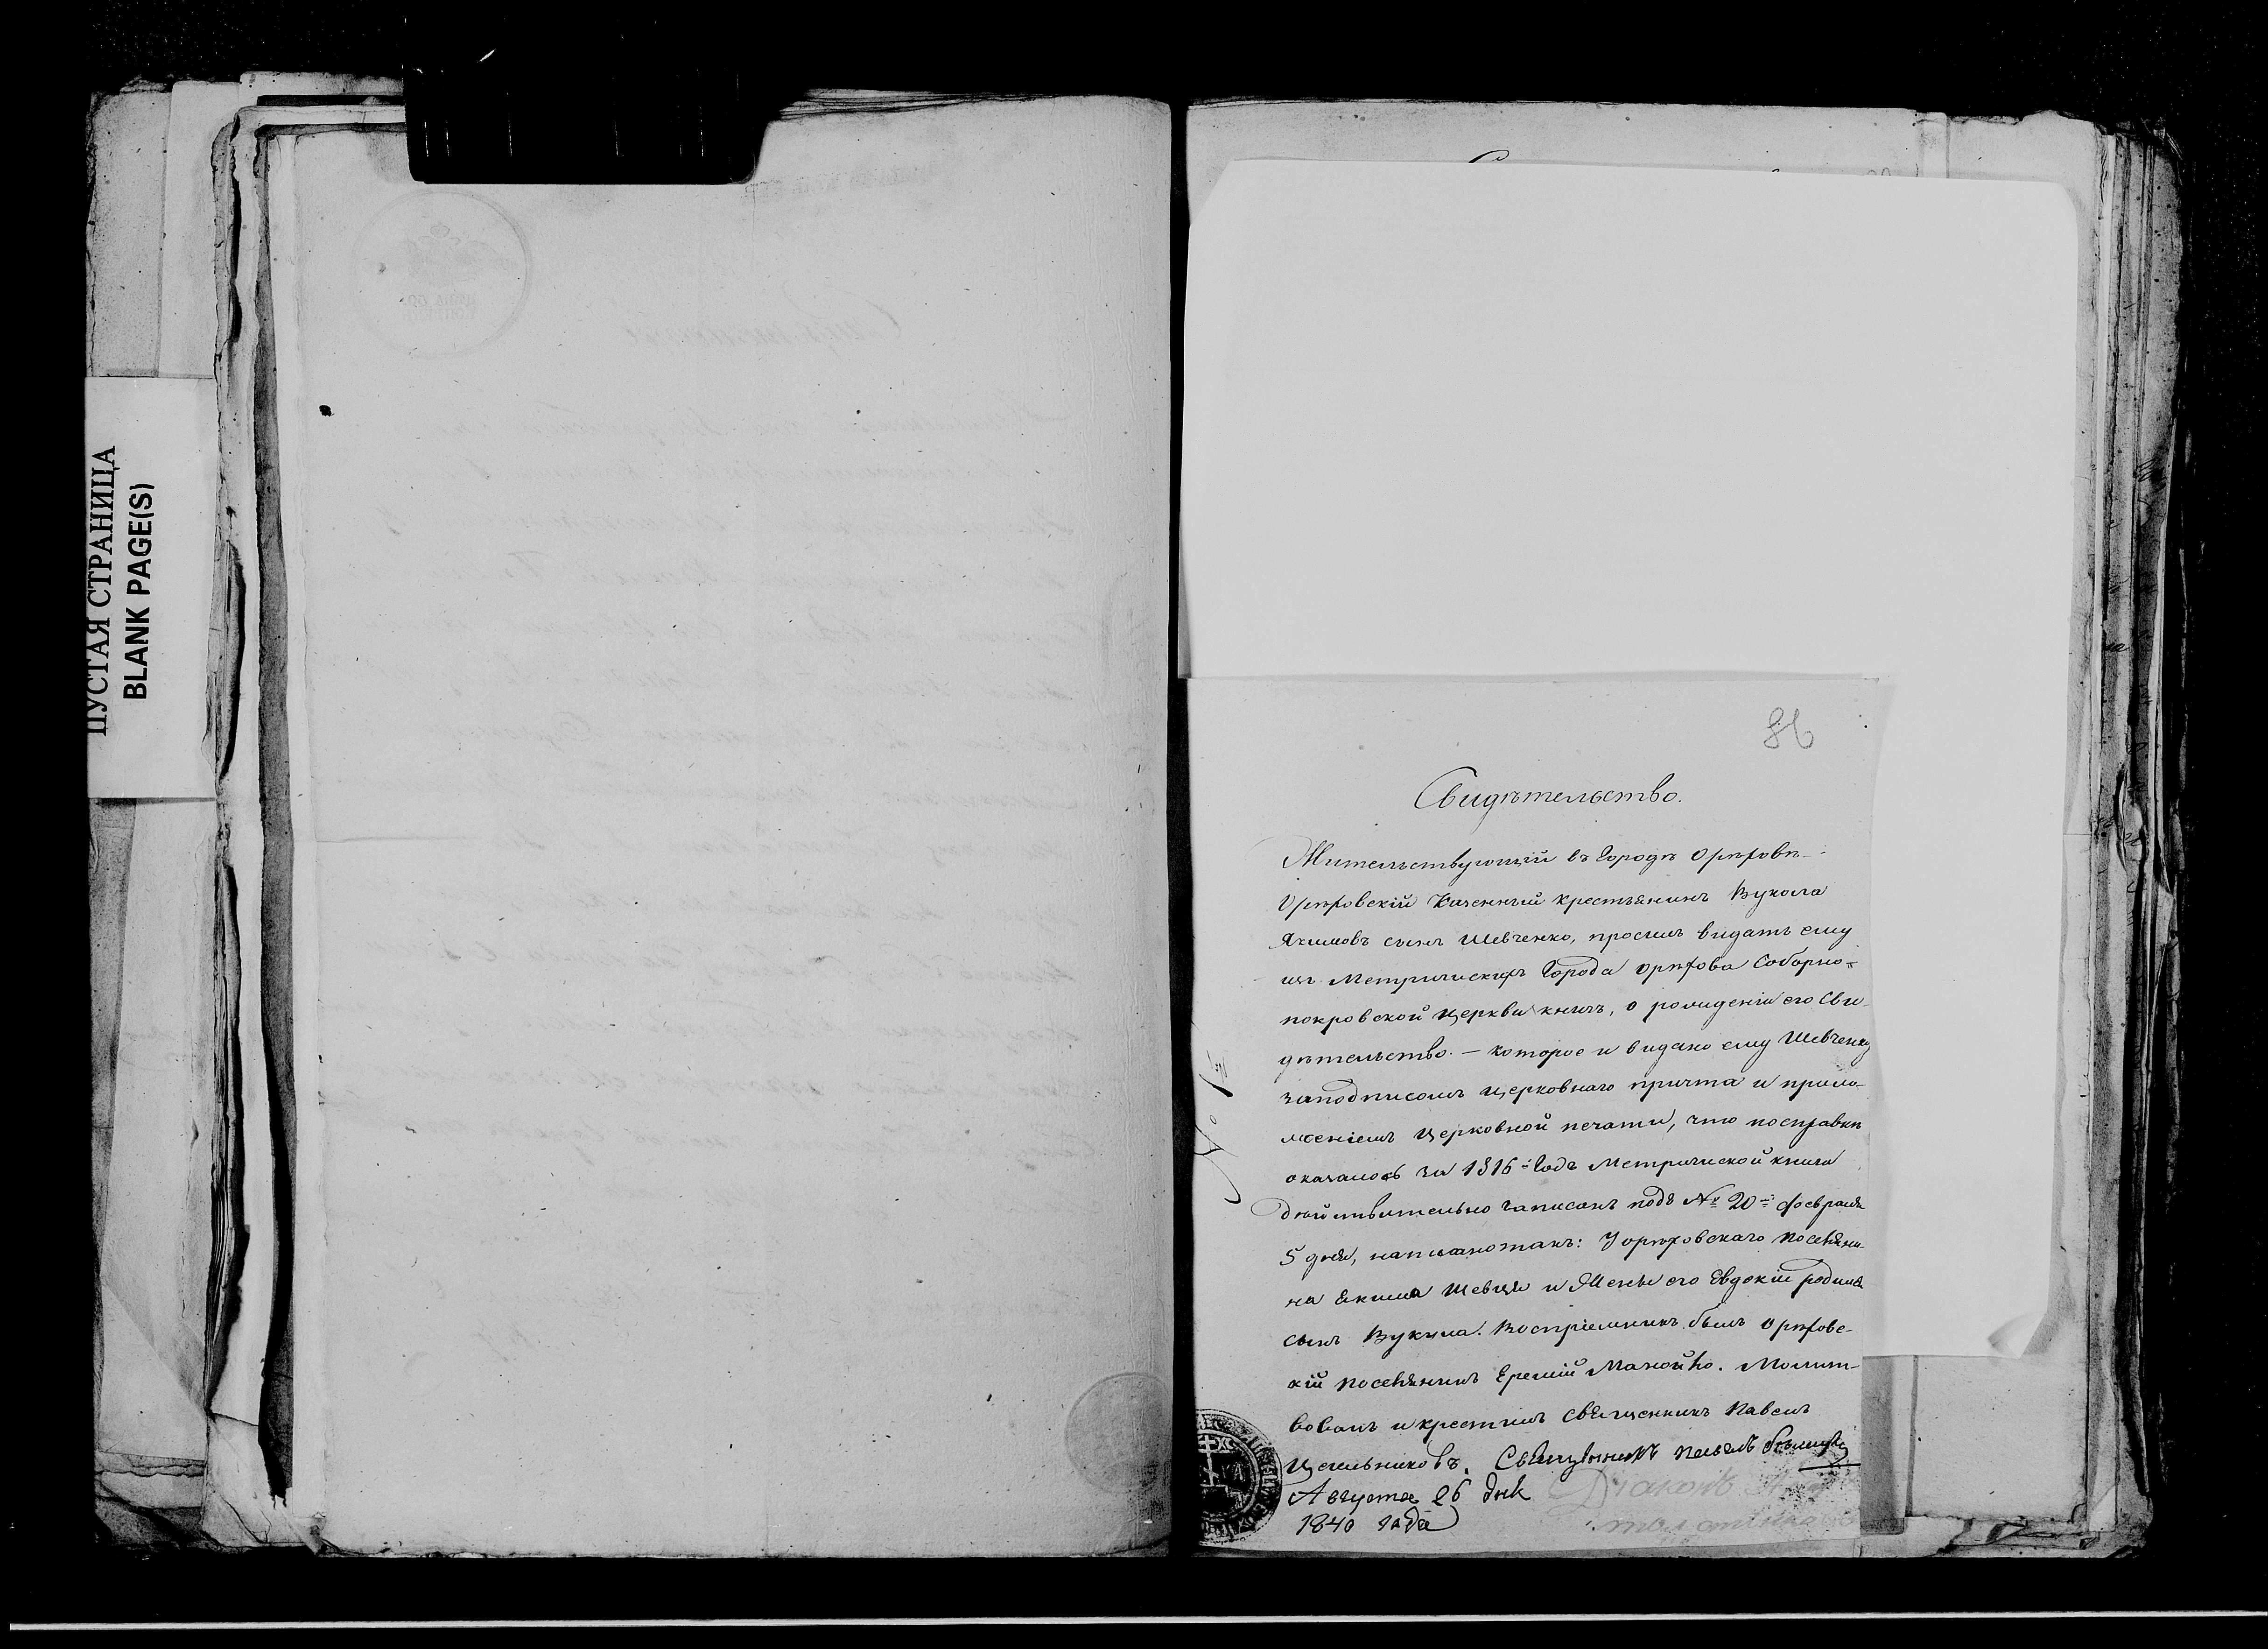 ПУСТАЯ СТРАНИЦА
BLANK PAGE(S)
86
Свидѣтельство.
Жительствующій въ Городѣ Орѣховѣ
Орѣховскій Казенный крестьянинъ Вукола
Якимовъ сынъ Шевченко, просилъ видать ему
изъ Метрическихъ Города орѣхова Соборно=
покровской Церкви книгъ, о рождении его Сви-
дѣтельство. — которое и видано ему Шевченку
заподписомъ церковнаго причта и прило-
женіемъ Церковной печати, что посправки
оказалось за 1816-й Годъ Метрической книги
дѣйствительно записанъ подъ № 20-мъ февраля
5 дня, написанотакъ: У орѣховскаго поселяни-
на Екима Шевця и Жены его Евдокіи родился
сынъ Вукула. Воспріемникъ былъ Орѣховс-
кій поселянинъ Еремій Манойло. Молит-
вовалъ и крестилъ священникъ Павелъ
Цегельниковъ. Священникъ Павелъ
Августа 26 дня Діаконъ
1840 года
№ 1